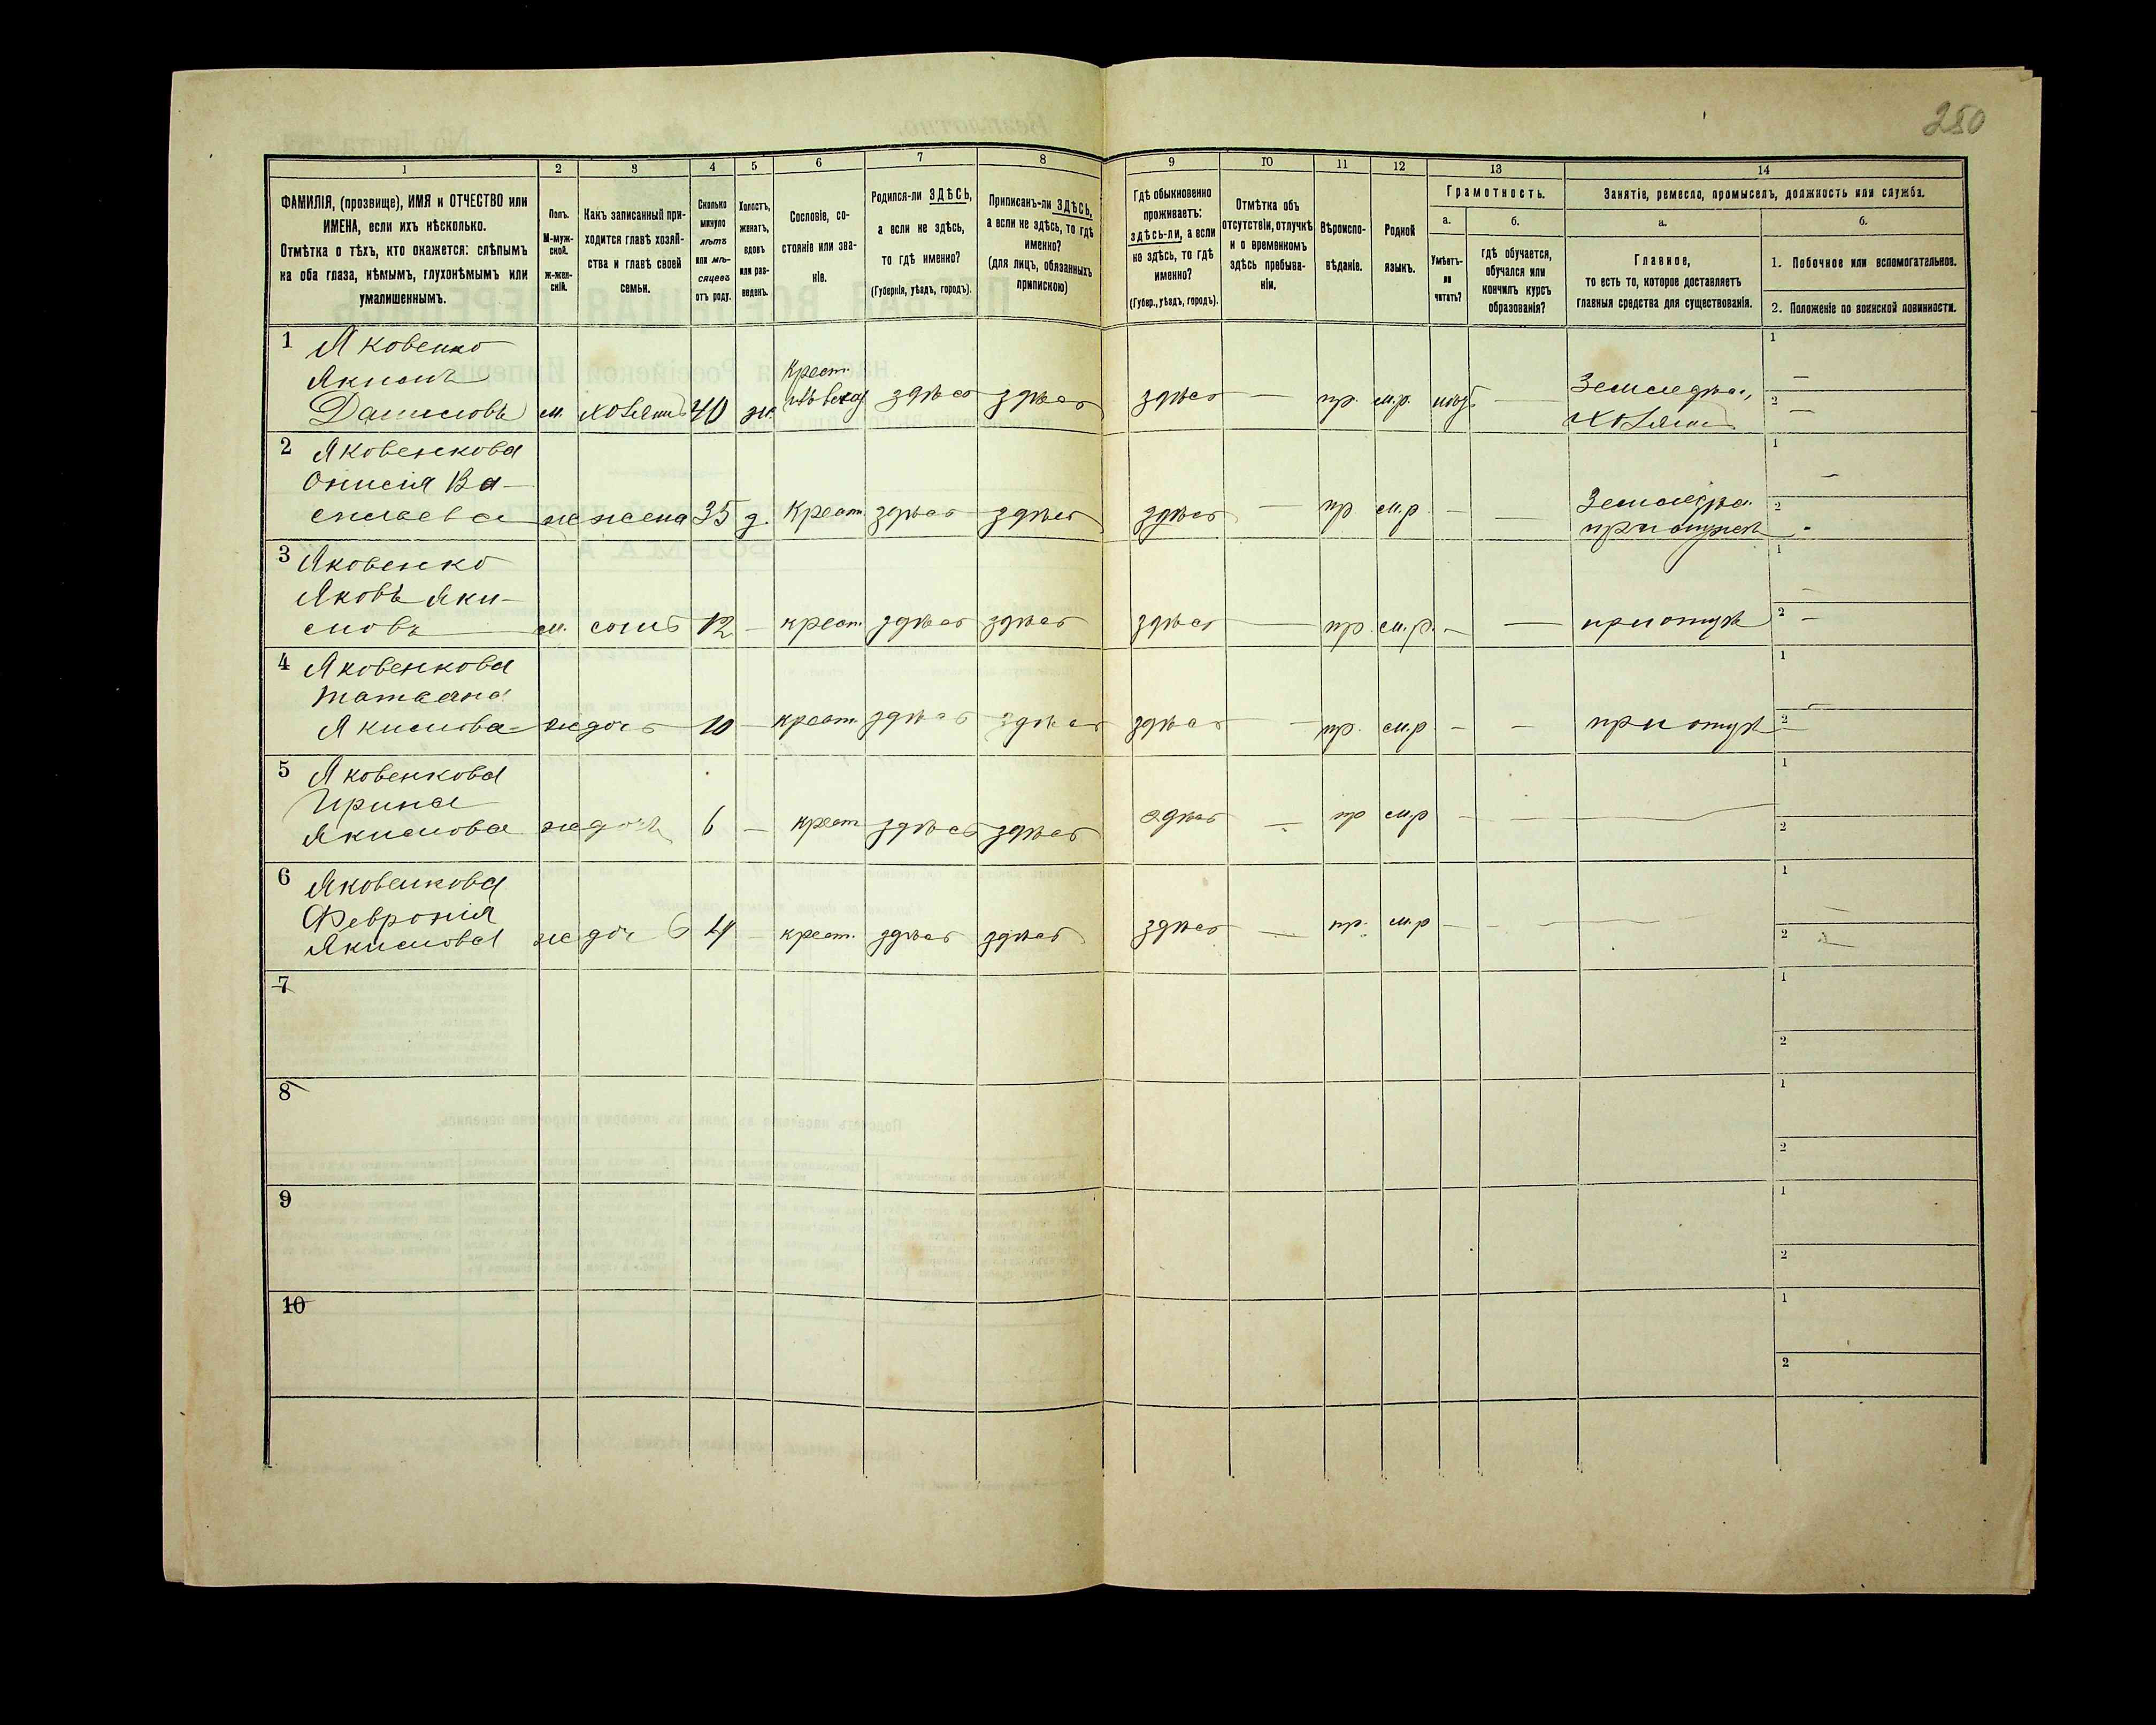 250
1 2 3 4 5 6 7 8 9 10 11 12 13 14
ФАМИЛІЯ, (прозвище), ИМЯ и ОТЧЕСТВО или
ИМЕНА, если ихъ нѣсколько.
Отмѣтка о тѣхъ, кто окажется: слѣпымъ
на оба глаза, нѣмымъ, глухонѣмымъ или
умалишеннымъ.
Полъ.
М-муж-
ской.
ж-жен-
скій.
Какъ записанный при-
ходится главѣ хозяй-
ства и главѣ своей
семьи.
Сколько
минуло
лѣтъ
или мѣ-
сяцевъ
отъ роду.
Холостъ,
женатъ,
вдовъ
или раз-
веденъ.
Сословіе, со-
стояніе или зва-
ніе.
Родился-ли ЗДѢСЬ,
а если не здѣсь,
то гдѣ именно?
(Губернія, уѣздъ, городъ).
Приписанъ-ли ЗДѢСЬ,
а если не здѣсь, то гдѣ
именно?
(для лицъ, обязанныхъ
припискою)
Гдѣ обыкновенно
проживаетъ:
здѣсь-ли, а если
не здѣсь, то гдѣ
именно?
(Губер., уѣздъ, городъ).
Отмѣтка объ
отсутствіи, отлучкѣ
и о временномъ
здѣсь пребыва-
ніи.
Вѣроиспо-
вѣданіе.
Родной
языкъ.
Грамотность.
а.
Умѣетъ-
ли
читать?
б.
гдѣ обучается,
обучался или
кончилъ курсъ
образованія?
Занятіе, ремесло, промыселъ, должность или служба.
а.
Главное,
то есть то, которое доставляетъ
главныя средства для существованія.
б.
1. Побочное или вспомогательное.
2. Положеніе по воинской повинности.
1 Яковенко
Якимъ
Даниловъ м. хозяинъ 40 ж. Крест. здѣсь здѣсь здѣсь — пр. м.р. — Земледѣл.
хозяинъ
1 —
2 —
2 Яковенкова
Онисія Ва-
сильева ж жена 35 з. Крест. здѣсь здѣсь здѣсь — пр м.р. — — Земледѣл.
при мужѣ
1 —
2 -
3 Яковенко
Яковъ Яки-
мовъ м. сынъ 12 — крест. здѣсь здѣсь здѣсь — пр. м.р. — — при отцѣ
1 —
2 —
4 Яковенкова
Татьяна
Якимова ж дочь 10 — крест. здѣсь здѣсь здѣсь — пр. м.р — — при отцѣ
1 —
2 —
5 Яковенкова
Ирина
Якимова ж дочь 6 — крест здѣсь здѣсь здѣсь — пр м.р — — —
1
2
6 Яковенкова
Февронія
Якимова ж дочь 4 — крест. здѣсь здѣсь здѣсь — пр. м.р — — —
1 —
2 —
7
1
2
8
1
2
9
1
2
10
1
2